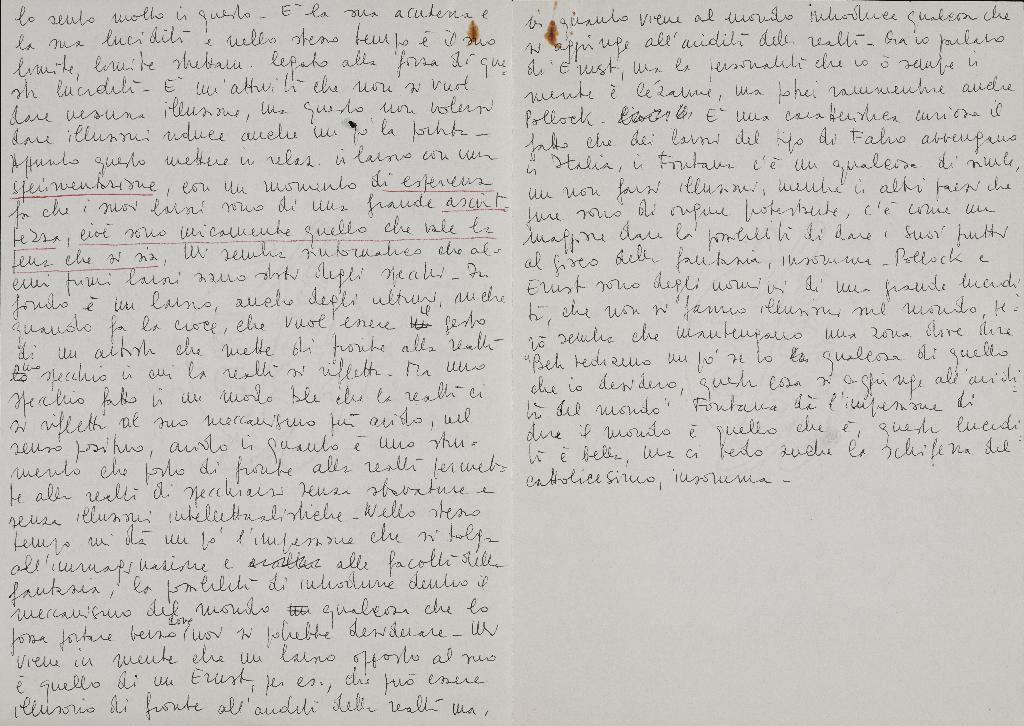 lo sento molto in questo - È la sua acutezza e
la sua lucidità e nello stesso tempo è il suo
limite, limite strettam. legato alla forza di que-
sta lucidità - È un'attività che non si vuol
dare nessuna illusione, ma questo non volersi
dare illusioni riduce anche un pò la portata -
Appunto questo mettere in relaz. il lavoro con una
sperimentazione, con un momento di esperienza
fa che i suoi lavori sono di una grande asciut-
tezza, cioè sono unicamente quello che vale la
pena che si sia, Mi sembra sintomatico che al-
cuni primi lavori siano stati degli specchi - In
fondo è un lavoro, anche degli ultimi, anche
quando fa la croce, che vuol essere il gesto
di un artista che mette di fronte alla realtà
uno specchio in cui la realtà si rifletta - Ma uno
specchio fatto in un modo tale che la realtà ci
si rifletta al suo meccanismo più arido, nel
senso positivo, arido in quanto è uno stru-
mento che posto di fronte alla realtà permet-
te alla realtà di specchiarsi senza sbavature e
senza illusioni intellettualistiche - Nello stesso
tempo mi dà un pò l'impressione che si tolga
all'immaginazione e alle facoltà della
fantasia, la possibilità di introdurre dentro il
meccanismo del mondo qualcosa che lo
possa portare verso dove noi si potrebbe desiderare - Mi
viene in mente che un lavoro opposto al suo
è quello di un Ernst, per es., che può essere
illusorio di fronte all'aridità della realtà ma,
in quanto viene al mondo introduce qualcosa che
si aggiunge all'aridità della realtà - Ora io parlavo
di Ernst, ma la personalità che io ho sempre in
mente è Cézanne, ma potrei rammentare anche
Pollock - È una caratteristica curiosa il
fatto che dei lavori del tipo di Fabro avvengano
in Italia, in Fontana c'è un qualcosa di simile,
un non farsi illusioni, mentre in altri paesi che
pure sono di origine protestante, c'è come un
maggiore dare la possibilità di dare i suoi frutti
al gioco della fantasia, insomma - Pollock e
Ernst sono degli uomini di una grande lucidi-
tà, che non si fanno illusioni sul mondo, pe-
rò sembra che mantengano una zona dove dire
"Beh vediamo un pò se io qualcosa di quello
che io desidero, questa cosa si aggiunge all'aridi-
tà del mondo" Fontana dà l'impressione di
dire il mondo è quello che è, questa lucidi-
tà è bella, ma ci vedo anche la schifezza del
cattolicesimo, insomma -